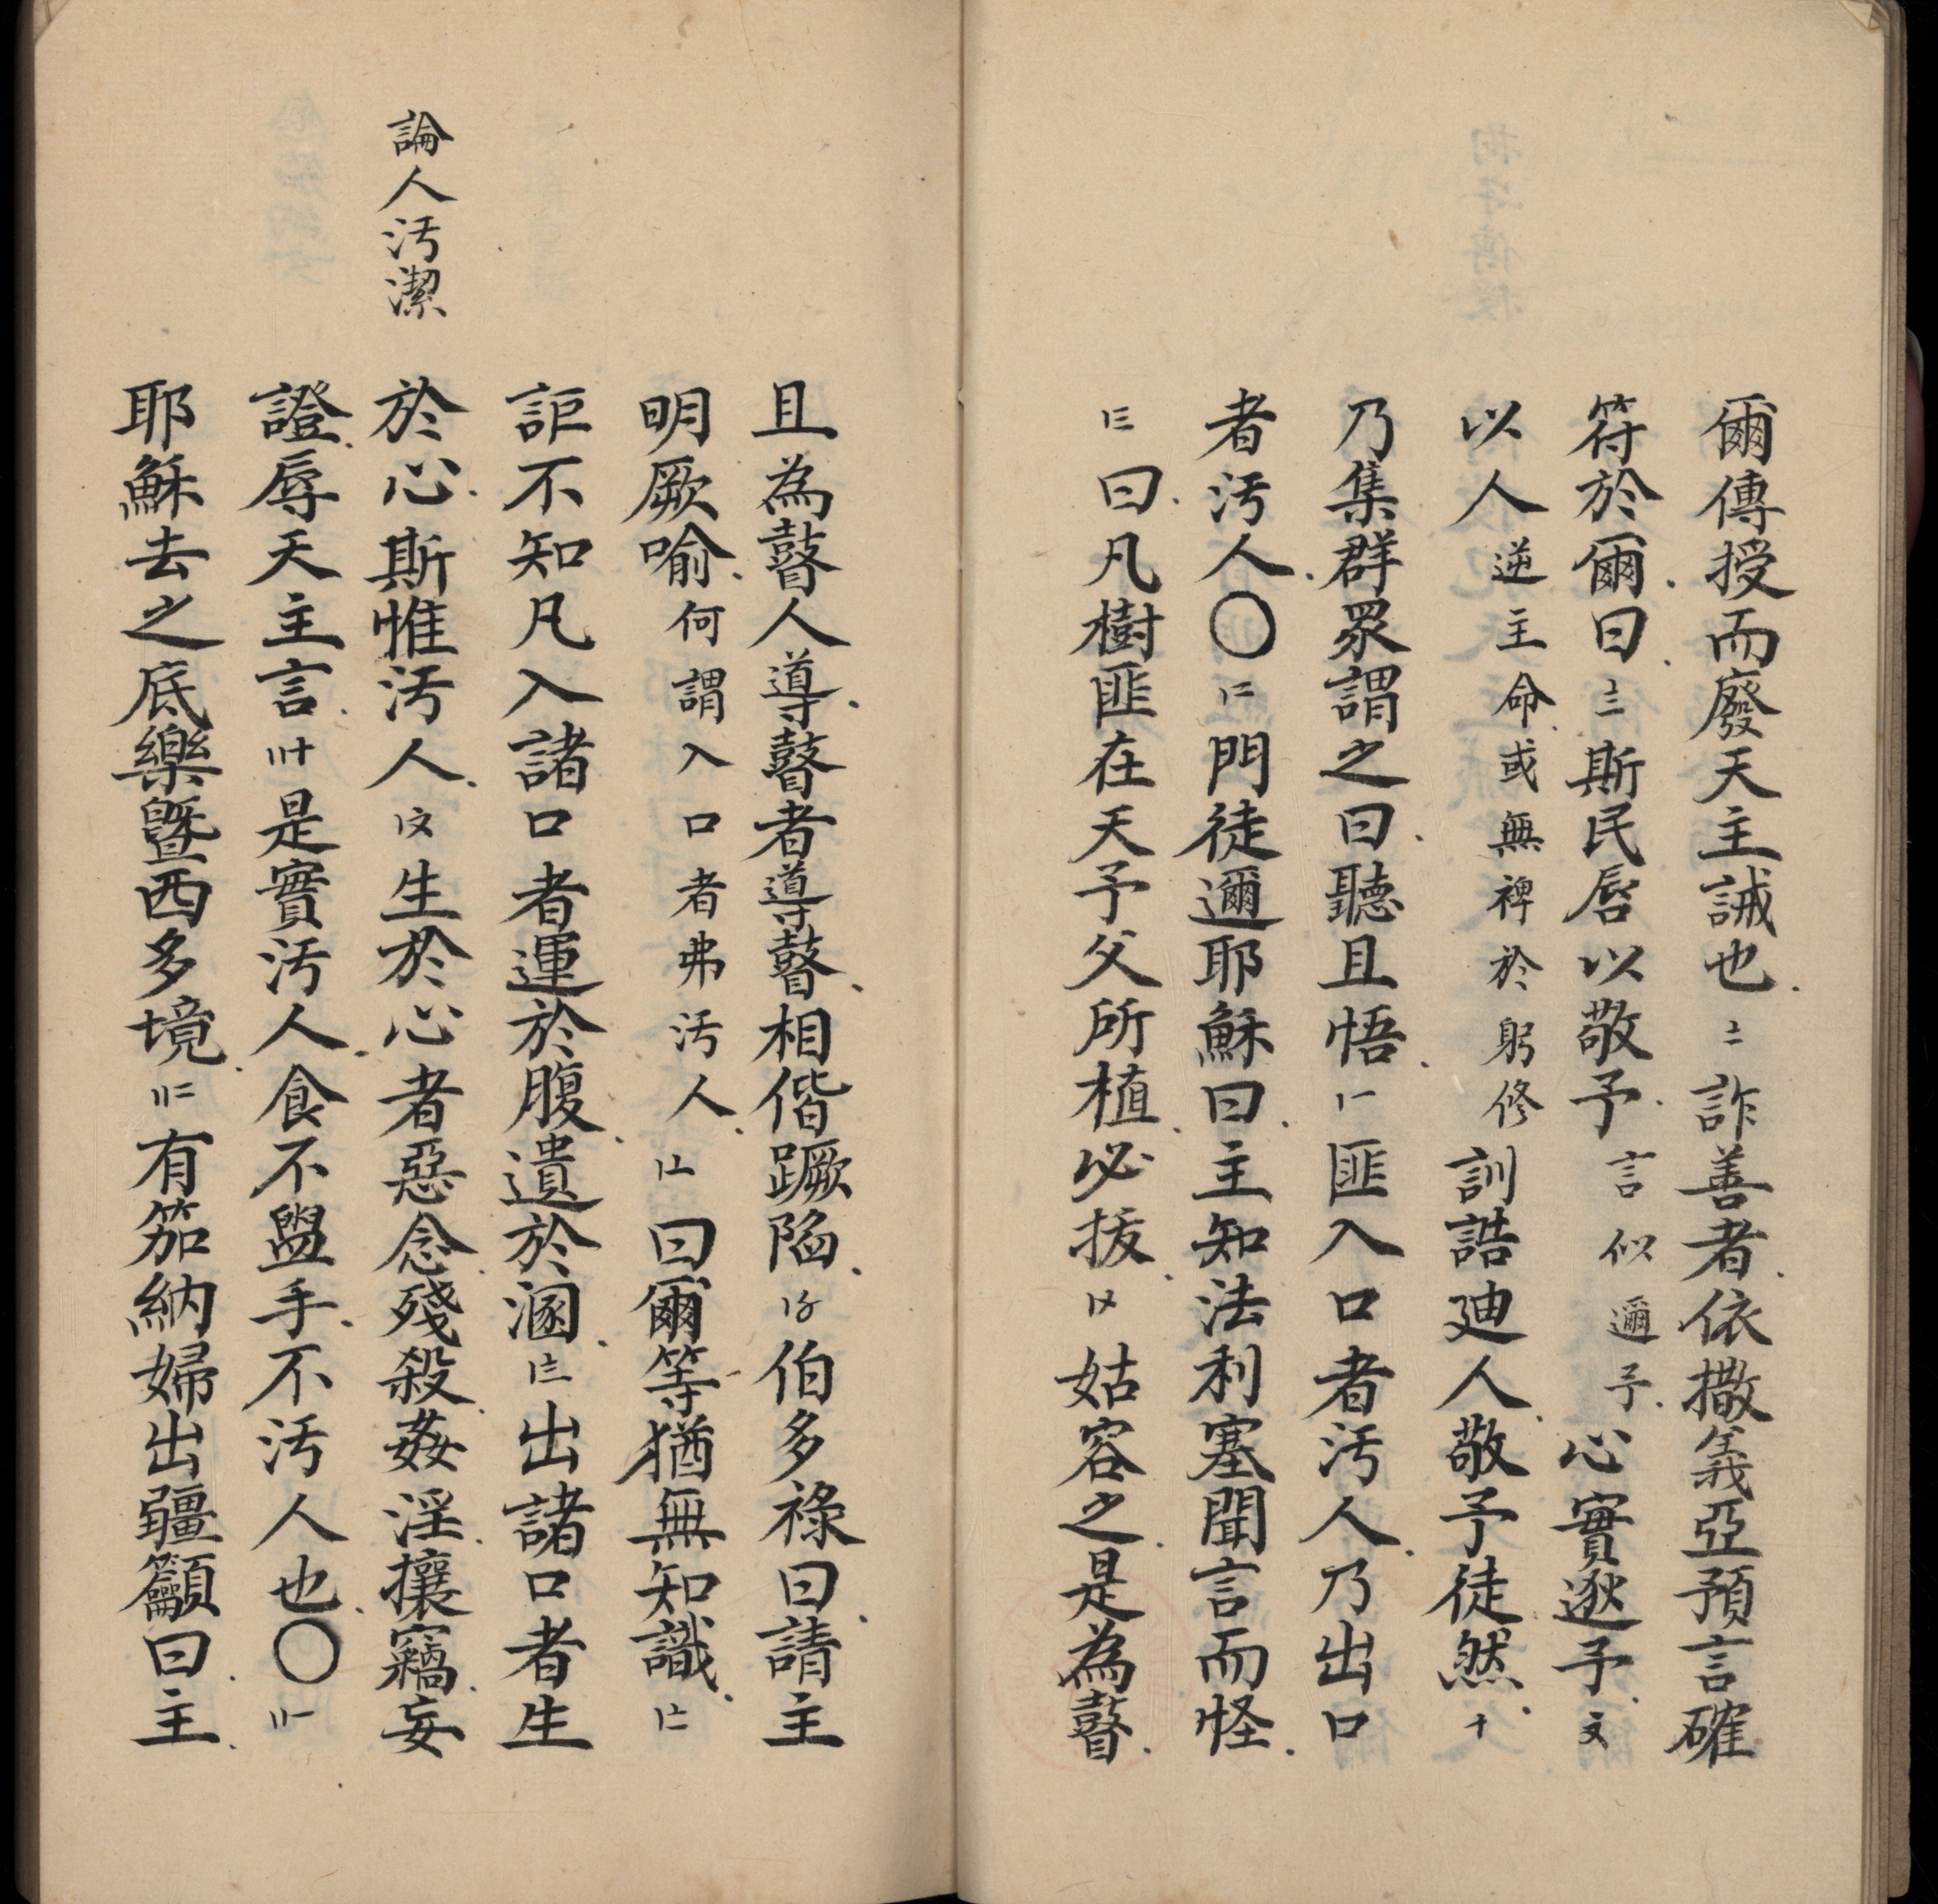 爾傳授而廢天主誡也〢詐善者依撒義亞預言確
符於爾曰〣斯民唇以敬予言似邇予心實逖予〩
以人逆主命或無裨於躬修訓誥廸人敬予徒然〸
乃集群眾謂之曰聽且悟〡一匪入口者汚人乃出口
者汚人〇〡二門徒邇耶穌曰主知法利塞聞言而怪
〡三曰凡樹匪在天予父所植必拔〡〤姑容之是為瞽
且為瞽人導瞽者導瞽相偕蹶陷〡〥伯多祿曰請主
明厥喻何謂入口者弗汚人〡〦曰爾等猶無知識〡〧
詎不知凡入諸口者運於腹遺於溷〡〨出諸口者生
論人汚潔
於心斯惟汚人〡〩生於心者惡念殘殺姦淫攘竊妄
證辱天主言〢〸是實汚人食不盥手不汚人也〇〢一
耶穌去之底樂曁西多境〢二有笳納婦出疆籲曰主